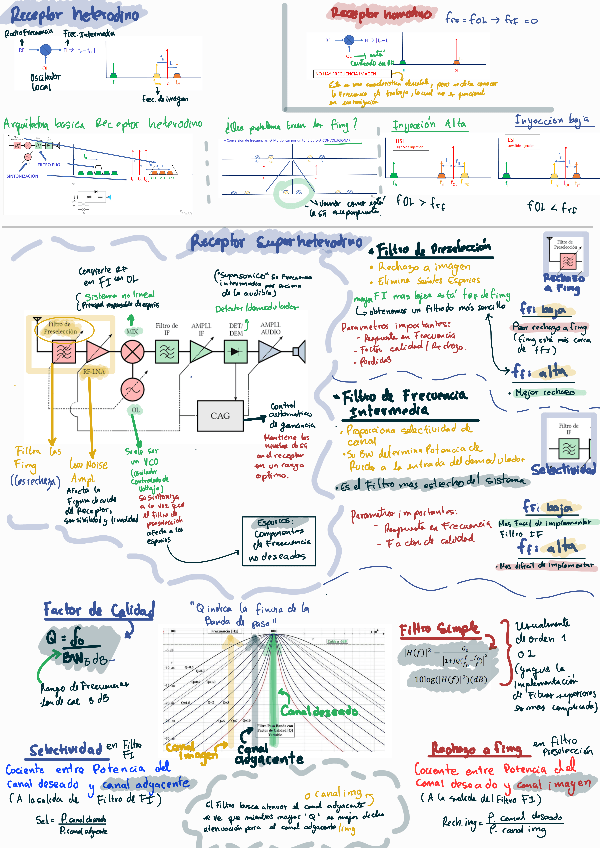 Receptor heterodino
Radio Frecuencia
Frec. Intermedia
RF
Oscilador
LOCAL
Frec. de imagen
Receptor homodino
fRF = fOL → fFI = 0
Arquitectura basica Receptor heterodino
SINTONIZACIÓN
¿Que problema traen las fimg?
Inyección Alta
fOL > fRF
Inyección baja
fOL < fRF
Receptor Superheterodino
Convierte RF
en FI con OL
(Sistema no lineal
("Supersonico" La Frecuencia
intermedia por encima
de lo audible)
Detector / demodulador
Filtro de
Preselección
MIX
Filtro de
IF
AMPLI
IF
DET/
DEM
AMPLI
AUDIO
RF-LNA
OL
CAG
Control
automatico
de ganancia
Mantiene los
niveles de
en el receptor
en un rango
optimo.
Filtra las
Fimg
(Las rechaza)
Low Noise
Ampl
Afecta la
Figura de ruido
del Receptor,
sensibilidad y linealidad
Suele ser
un VCO
(oscilador
Controlado de
Voltaje)
Se sintoniza
a la vez que
el filtro de
preselección
afecta a los
espurios
Espurios:
Componentes
de Frecuencia
no deseados
• Filtro de Preselección
• Rechazo a imagen
• Elimina Señales Espurias
↳ obtenemos un filtrado mas sencillo
Parametros importantes:
- Respuesta en Frecuencia
- Factor calidad / Rechazo.
- Perdidas
Filtro de
Preselección
Rechazo
a Fimg
fFI baja
• Peor rechazo a fimg
(fimg está mas cerca
de fFI)
fFI alta
• Mejor rechazo
• Filtro de Frecuencia
Intermedia
• Proporciona selectividad de
canal
• Su BW determina Potencia de
Ruido a la entrada del demodulador
• Es el Filtro mas estrecho del Sistema
Parametros importantes:
- Respuesta en Frecuencia
- Factor de calidad
Filtro de
IF
Selectividad
fFI baja
Mas Facil de implementar
Filtro IF
fFI alta
• Mas dificil de implementar
Factor de Calidad
Q = fo
BW3dB
Rango de Frecuencias
donde cae 3 dB
"Q indica la finura de la
Banda de paso"
Canal deseado
Canal
imagen
canal
adyacente
Filtro Simple
10log(|H(f)|²)(dB)
Usualmente
de orden 1
o 2
(ya que la
implementación
de Filtros superiores
es mas complicada)
Selectividad en Filtro
FI
Cociente entre Potencia del
canal deseado y canal adyacente
(A la salida de Filtro de FI)
Sel = P. canal deseado
P. canal adyacente
o canal img
El Filtro busca atenuar el canal adyacente
se ve que mientras mayor "Q" es mejor dicha
atenuación para el canal adyacente / img
Rechazo a fimg en filtro
Preselección
Cociente entre Potencia del
Canal deseado y canal imagen
(A la salida del Filtro FI)
Rech.img = P. canal deseado
P. canal img